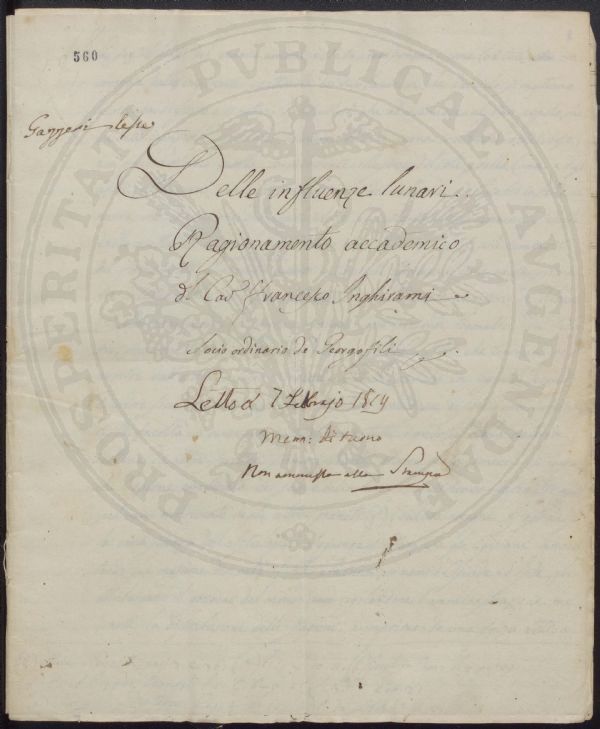 560
PROSPERITATI PVBLICAE AVGENDAE
Gazzeri
Delle influenze lunari.
Ragionamento accademico
di Cav Francesco Inghirami
Socio ordinario de Georgofili
Letto
Mem: di turno
Non ammessa alla Stampa